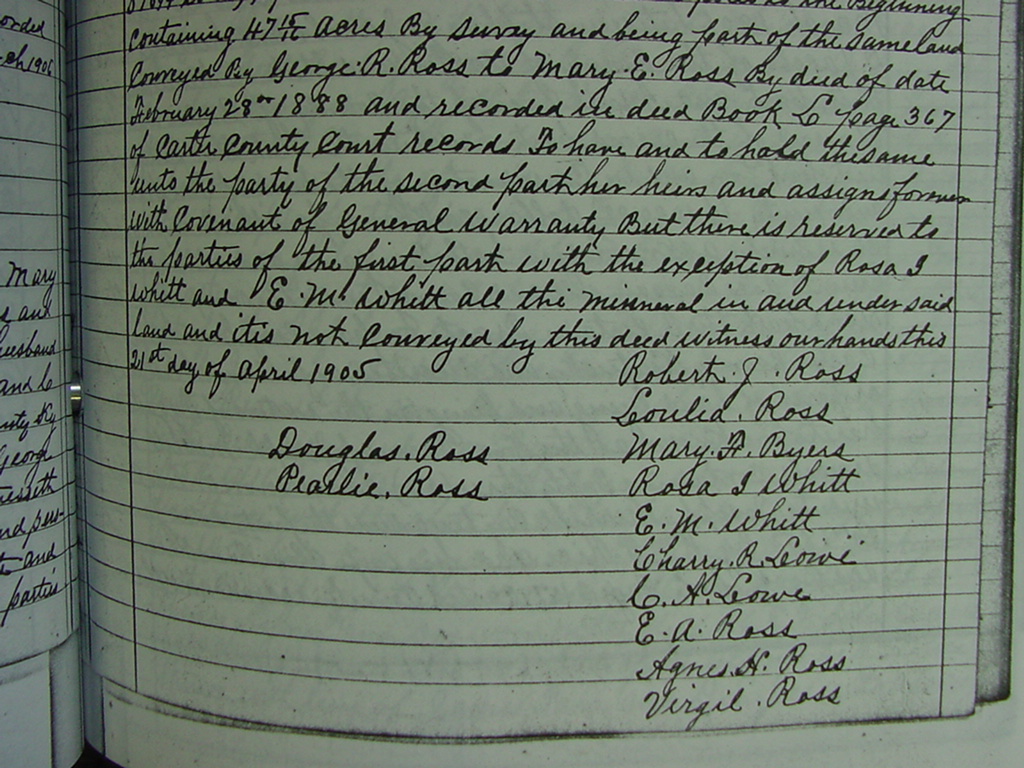 the Beginning
containing 47 15/16 acres By survey and being part of the same land
conveyed By George. R. Ross to Mary. E. Ross By deed of date
February 28th 1888 and recorded in deed Book L page 367
of Carter County Court records To have and to hold the same
unto the party of the second part her heirs and assigns forever
with Covenant of General warranty But there is reserved to
the parties of the first part with the exception of Rosa I
Whitt and E. M. Whitt all the minneral in and under said
land and it is not conveyed by this deed witness our hands this
21st day of april 1905
Robert. J. Ross
Loulia. Ross
Douglas. Ross
Mary. F. Byers
Pearlie. Ross
Rosa I Whitt
E. M. Whitt
Charry. R. Lowe
C. A. Lowe
E. A. Ross
Agnes. H. Ross
Virgil. Ross
Mary
and
husband
and C
Ky
George
and
parties